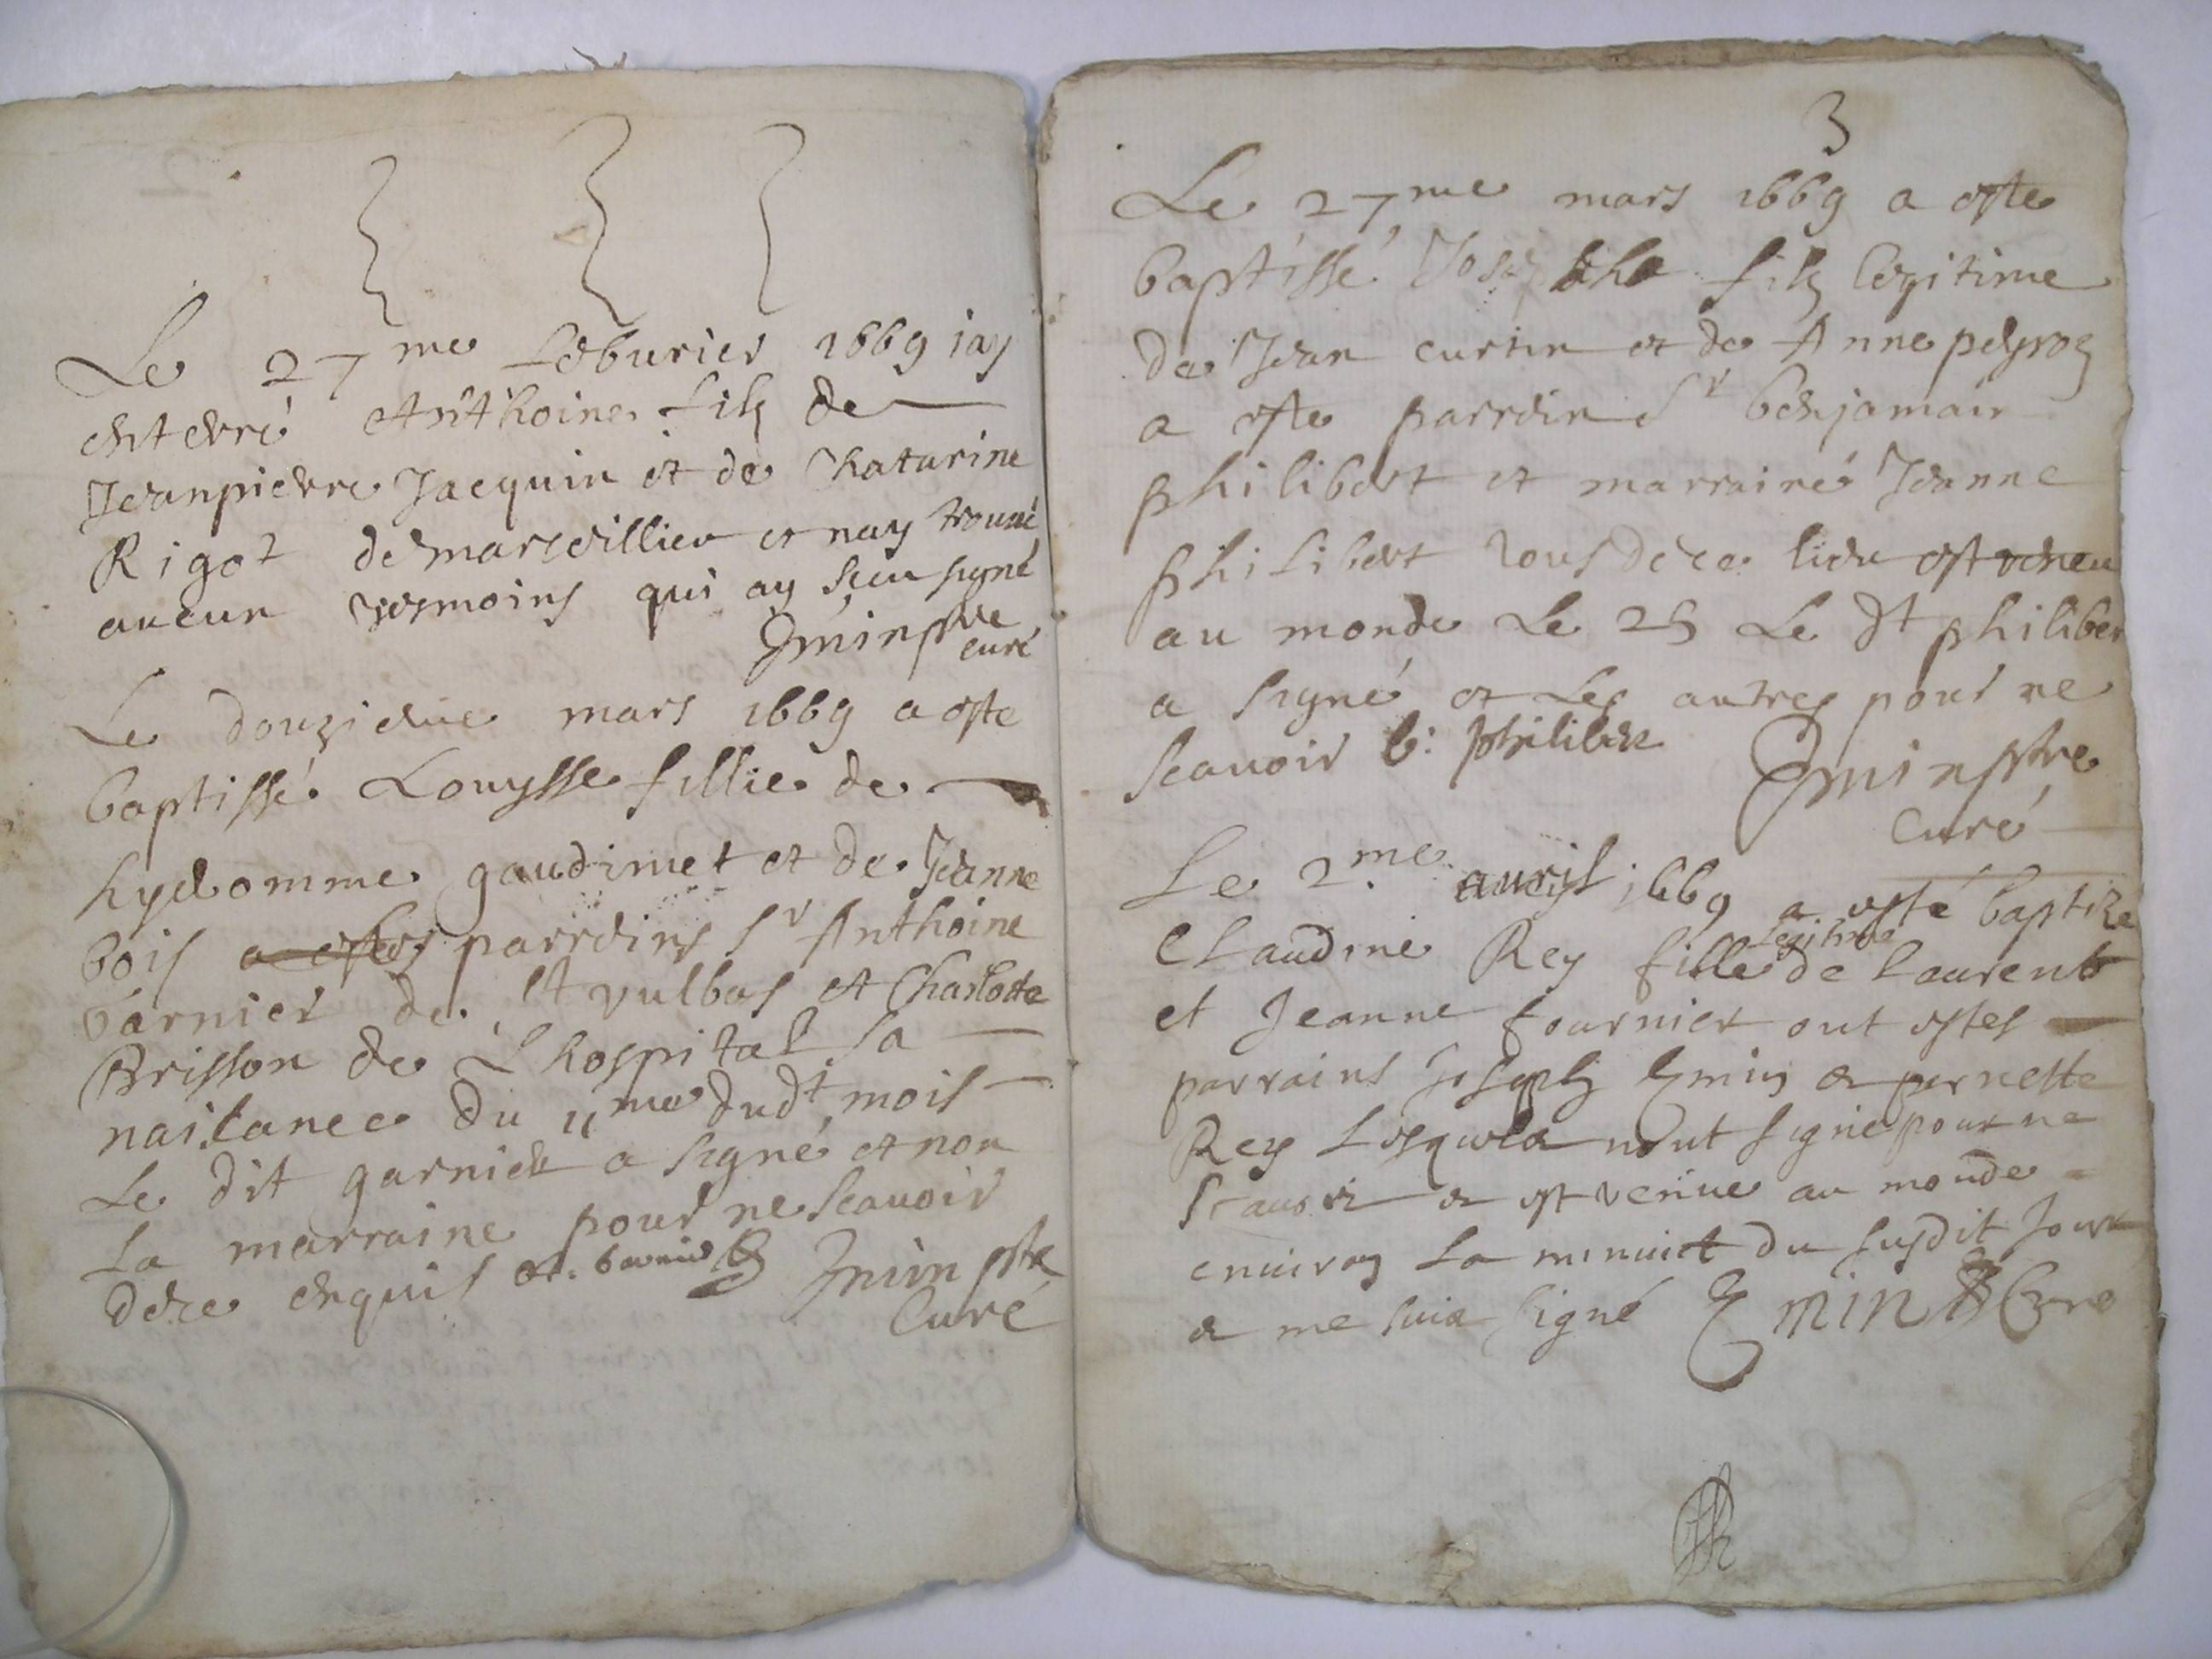 Le 27me feburier 1669 iay
enterré Anthoine filz de
Jeanpierre Jacquin et de Chatarine
Rigot de marseillieu et nay trouué
aucun tesmoins qui ay sceu signé
Emin pbre
curé
Le douzieme mars 1669 a este
baptissé Louysse fillie de
hyeromme gaudimet et de Jeanne
bois parreins Sr Anthoine
garnier de St vulbas et Charlotte
Brisson de Lhospital sa
naissance du 11me dudt mois
Le dit garnier a signé et non
La marraine pour ne scauoir
de ce enquis Emin pbre
Curé
3
Le 27me mars 1669 a este
baptissé Josephe filz legitime
de Jean curtin et de Anne peyroz
a este parrein Sr benjamain
philibert et marraine Jeanne
philibert tous de ce lieu est veneu
au monde Le 25 Le dt philiber
a signé et Les autres pour ne
scauoir b: philibert
Emin pbre
Curé
Le 2me auril 1669 a esté baptize
Claudine Rey fille legitime de Laurent
et Jeanne fournier ont estes
parrains Joseph Emin & pernette
Rey Lesquels nont signe pour ne
scauoir & est venue au monde
enuiron la minuict du susdit Jour
& me suis signé Emin